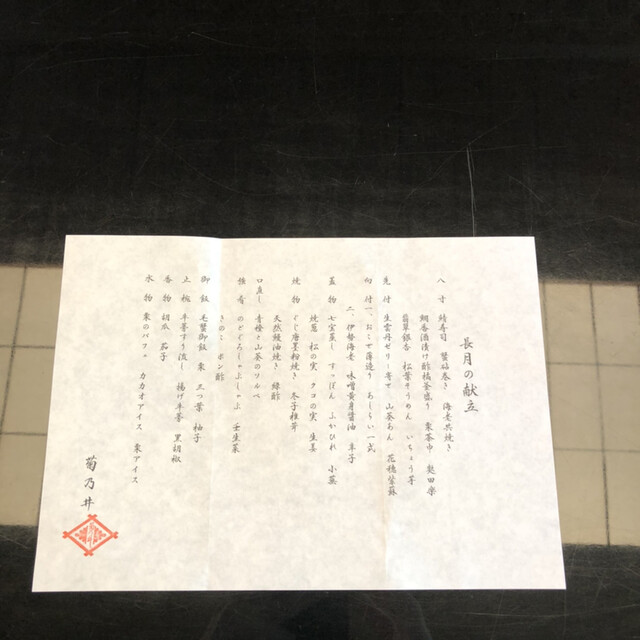 長月の献立
八寸 鯖寿司 蟹砧巻き 海老共焼き
鯛香酒漬け酢橘釜盛り 栗茶巾 奥田楽
翡翠銀杏 松葉そうめん いちょう芋
先付 生雲丹ゼリー寄せ 山葵あん 花穂紫蘇
向付 一、おこぜ薄造り あしらい一式
二、伊勢海老 味噌黄身醤油 辛子
蓋物 七宝蒸し すっぽん ふかひれ 小蕪
焼葱 松の実 クコの実 生姜
焼物 ぐじ唐墨粉焼き 冬子椎茸
天然鰻神焼き 緑酢
口直し 青橙と山葵のソルベ
強肴 のどぐろしゃぶしゃぶ 壬生菜
きのこ ポン酢
御飯 毛蟹御飯 栗 三つ葉 柚子
止椀 牛蒡すり流し 揚げ牛蒡 黒胡椒
香物 胡瓜 茄子
水物 栗のパフェ カカオアイス 栗アイス
菊乃井